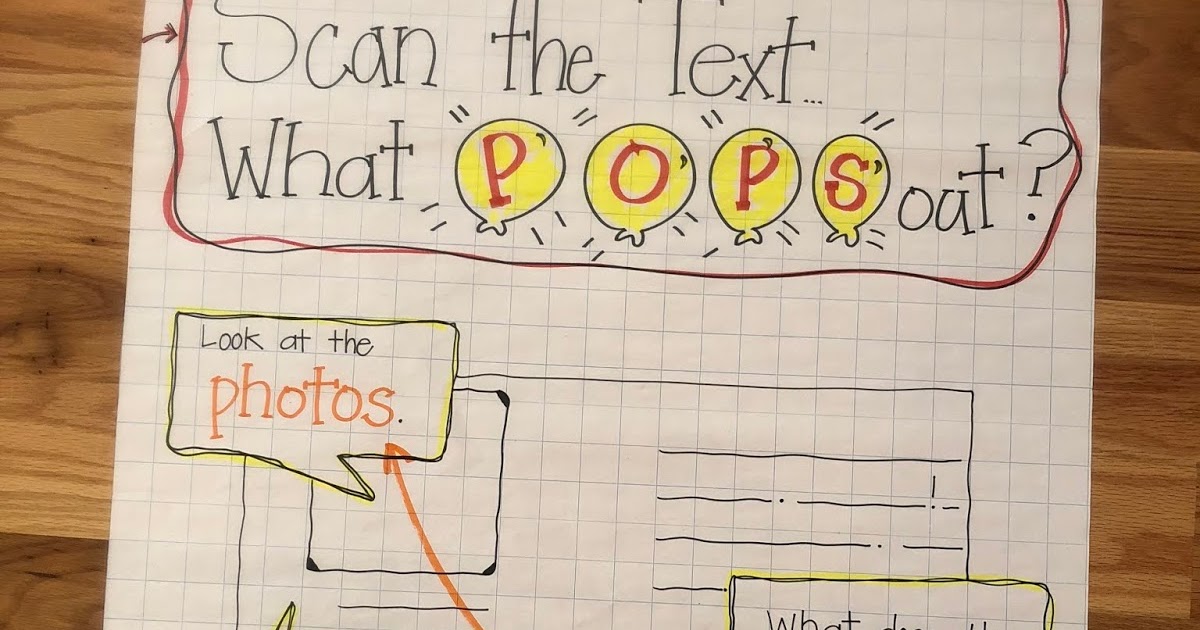 Scan the Text...
What POPS out?
Look at the
photos.
What